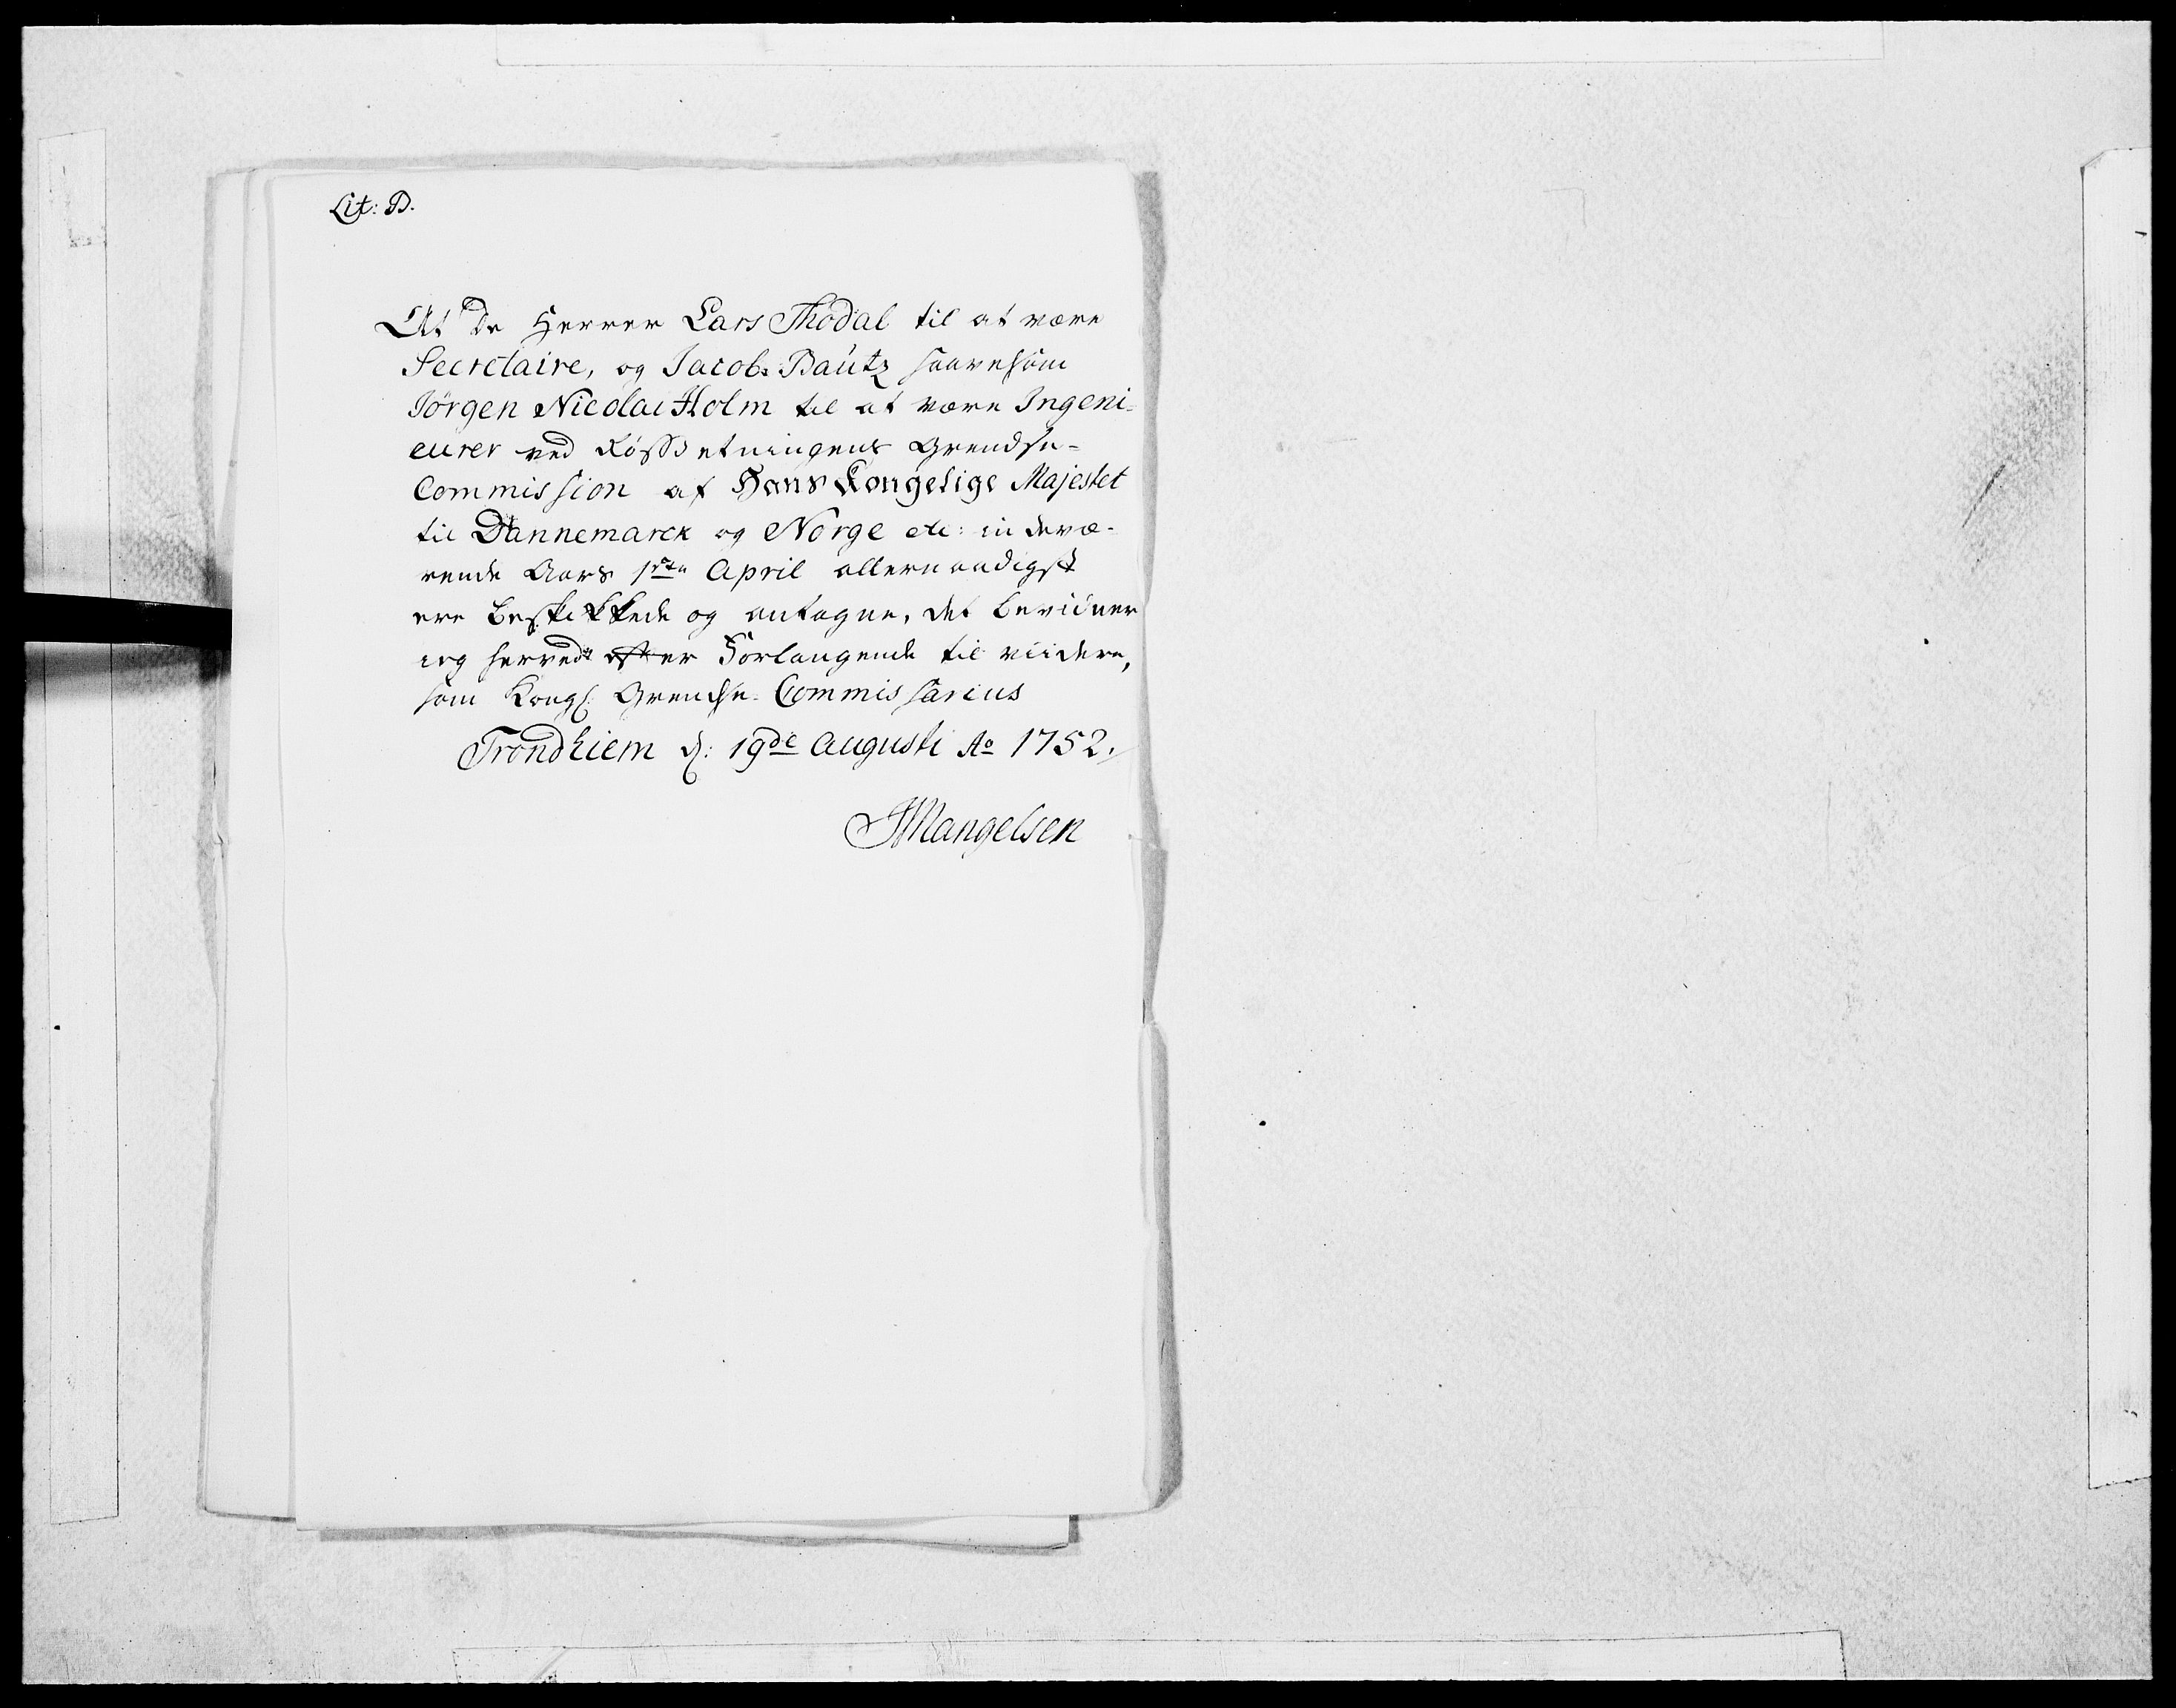 Lit: D.
At De Herrer Lars Thodal til at være
Secretaire, og Jacob Bautz saavelsom
Jörgen Nicolai Holm til at være Ingeni=
eurer ved Grendse=
Commission af Hans Kongelige Majestet
til Dannemarck og Norge etc: indevæ=
rende Aars 1ste April allernaadigst
ere beskikkede og antagne, det bevidner
ieg herved efter Forlangende til viidere,
som Kongl: Grendse-Commissarius
Trondhiem d: 19de Augusti Ao 1752.
JMangelsen